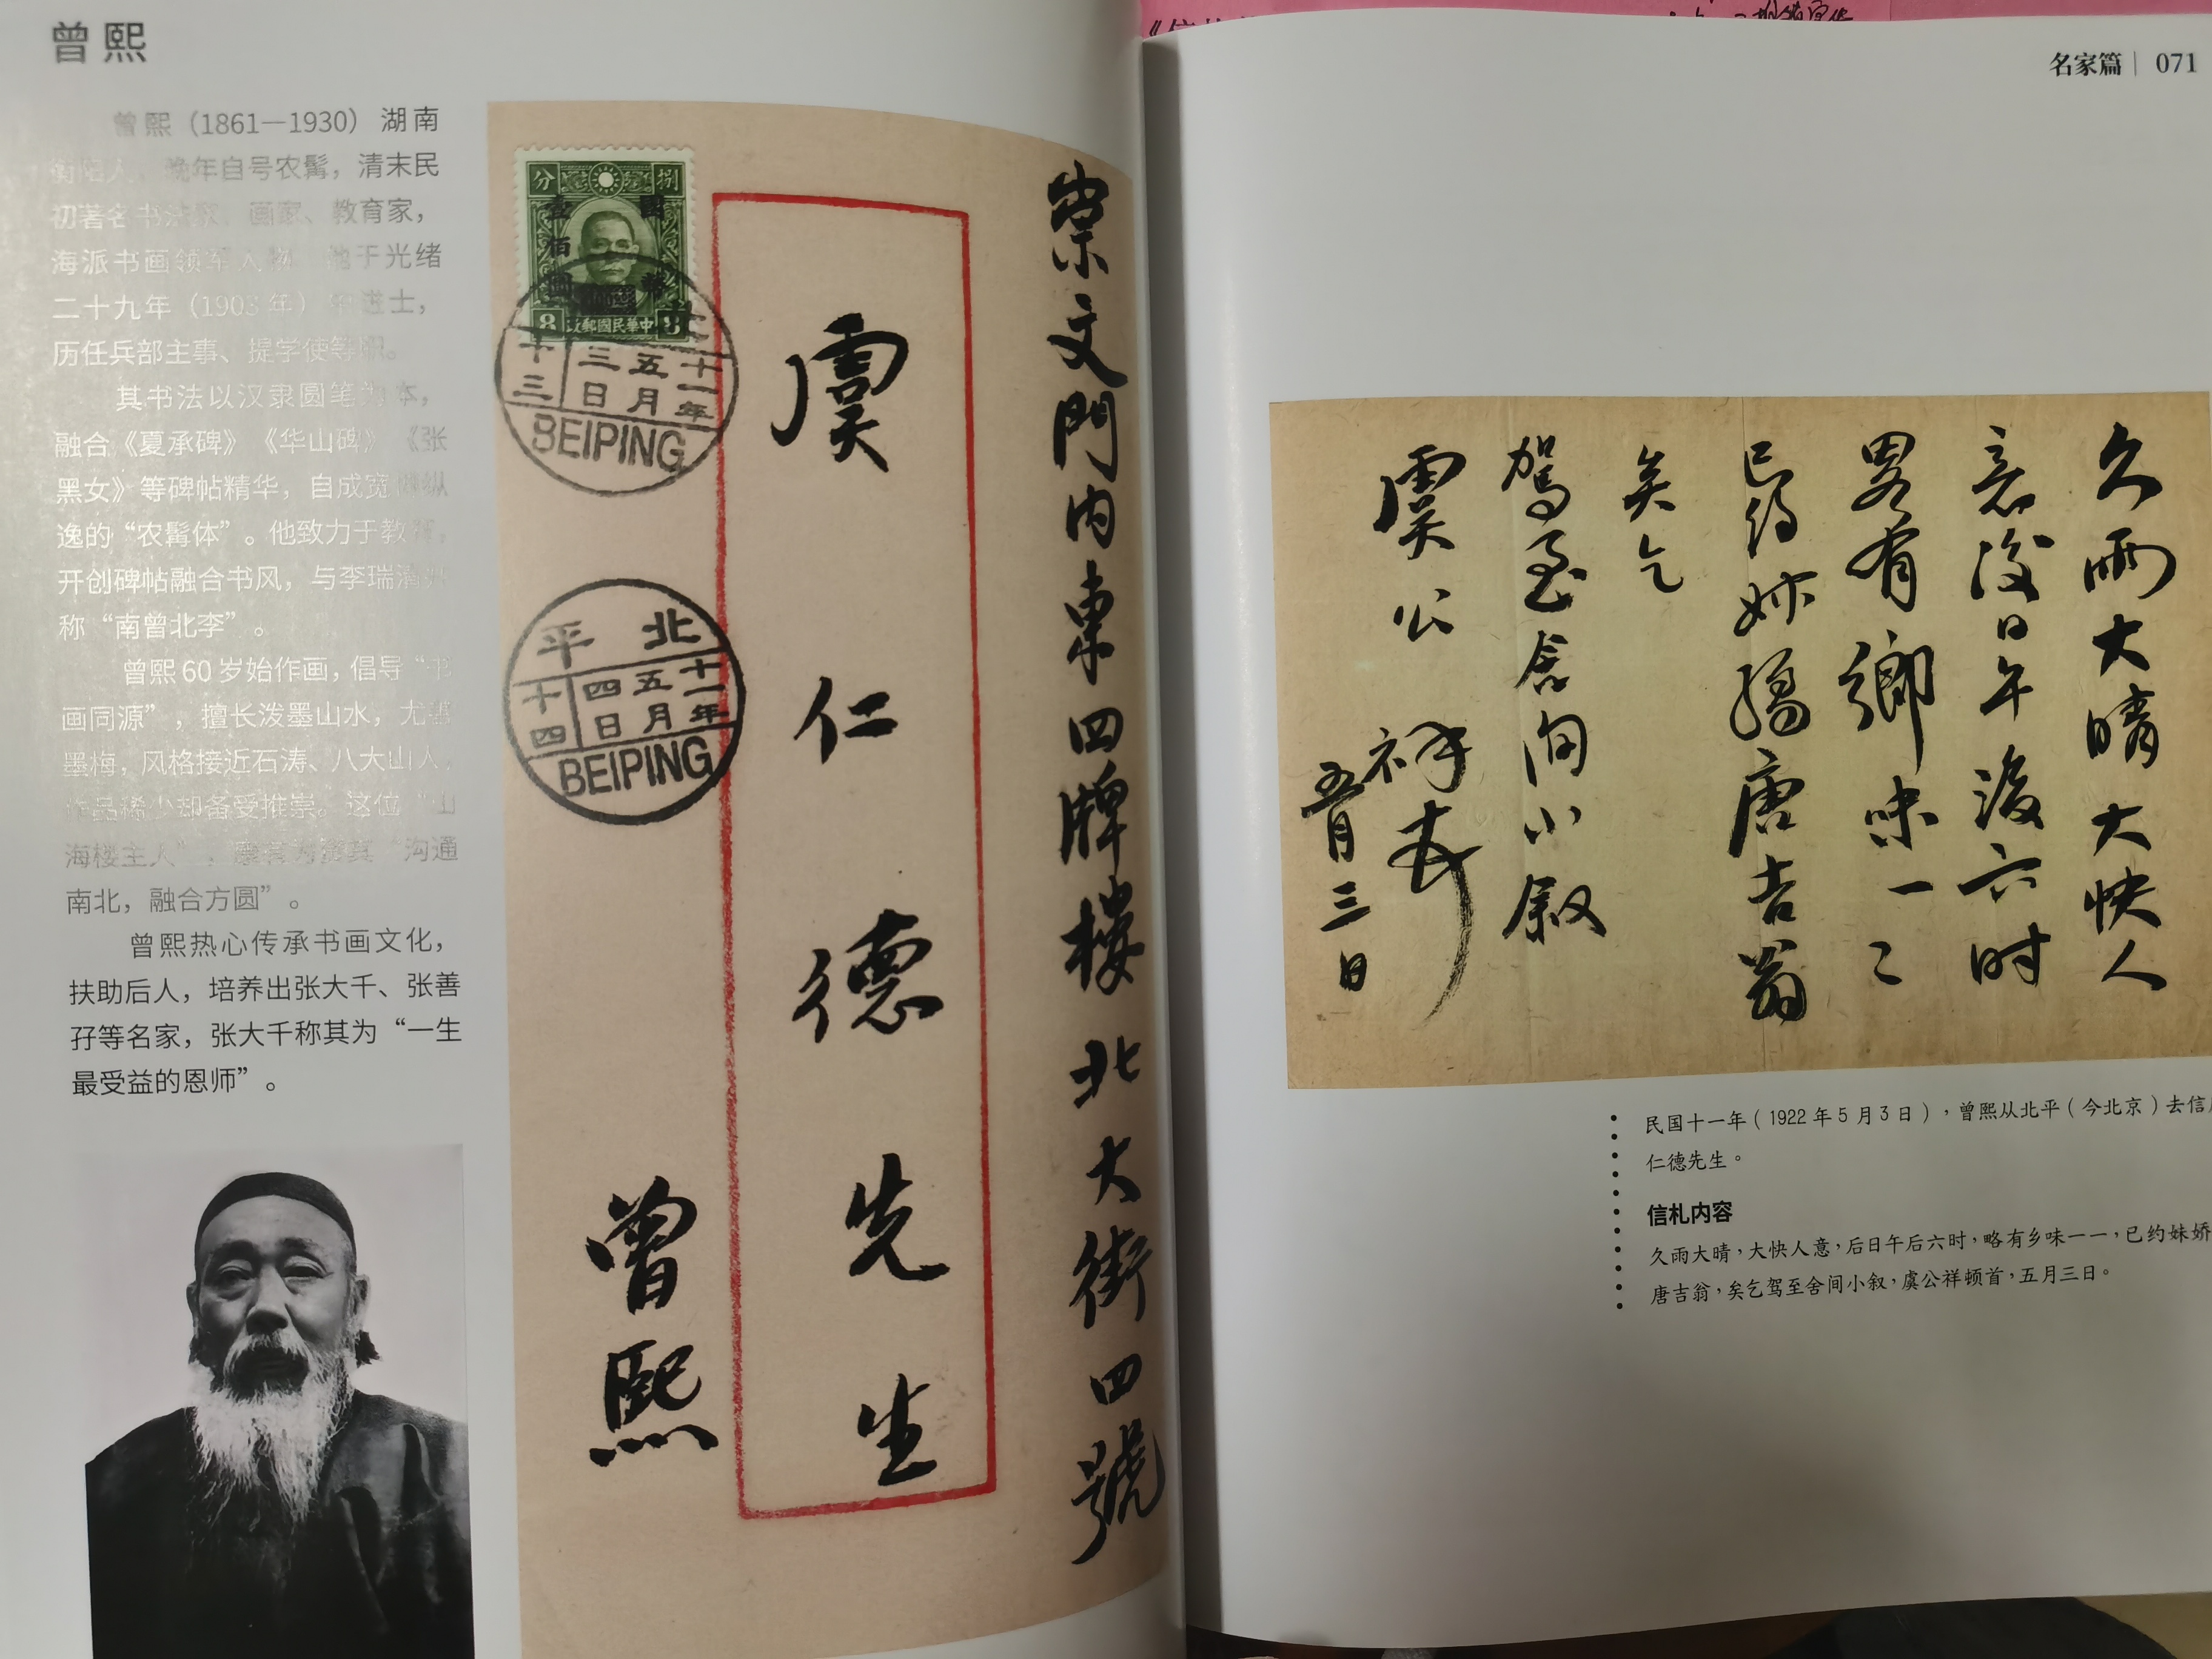 曾熙
曾熙（1861—1930）湖南
衡阳人，晚年自号农髯，清末民
初著名书法家、画家、教育家，
海派书画领军人物。他于光绪
二十九年（1903年）中进士，
历任兵部主事、提学使等职。
其书法以汉隶圆笔为本，
融合《夏承碑》《华山碑》《张
黑女》等碑帖精华，自成宽博纵
逸的“农髯体”。他致力于教育，
开创碑帖融合书风，与李瑞清并
称“南曾北李”。
曾熙60岁始作画，倡导“书
画同源”，擅长泼墨山水，尤善
墨梅，风格接近石涛、八大山人，
作品稀少却备受推崇。这位“山
海楼主人”，康有为赞其“沟通
南北，融合方圆”。
曾熙热心传承书画文化，
扶助后人，培养出张大千、张善
孖等名家，张大千称其为“一生
最受益的恩师”。
崇文門内東四牌樓北大街四號
虞仁德先生
曾熙
分 捌
國幣
壹佰圓
8 中華民國郵政 8
十一年
五月
三日
十三
BEIPING
北平
十一年
五月
四日
十四
BEIPING
名家篇 | 071
久雨大晴大快人
意後日午後六时
畧有鄉味一二
已约妳骄唐吉翁
矣乞
駕至舍间小叙
虞公 祥顿首
五月三日
民国十一年（1922年5月3日），曾熙从北平（今北京）去信
仁德先生。
信札内容
久雨大晴，大快人意，后日午后六时，略有乡味一一，已约妹娇
唐吉翁，矣乞驾至舍间小叙，虞公祥顿首，五月三日。